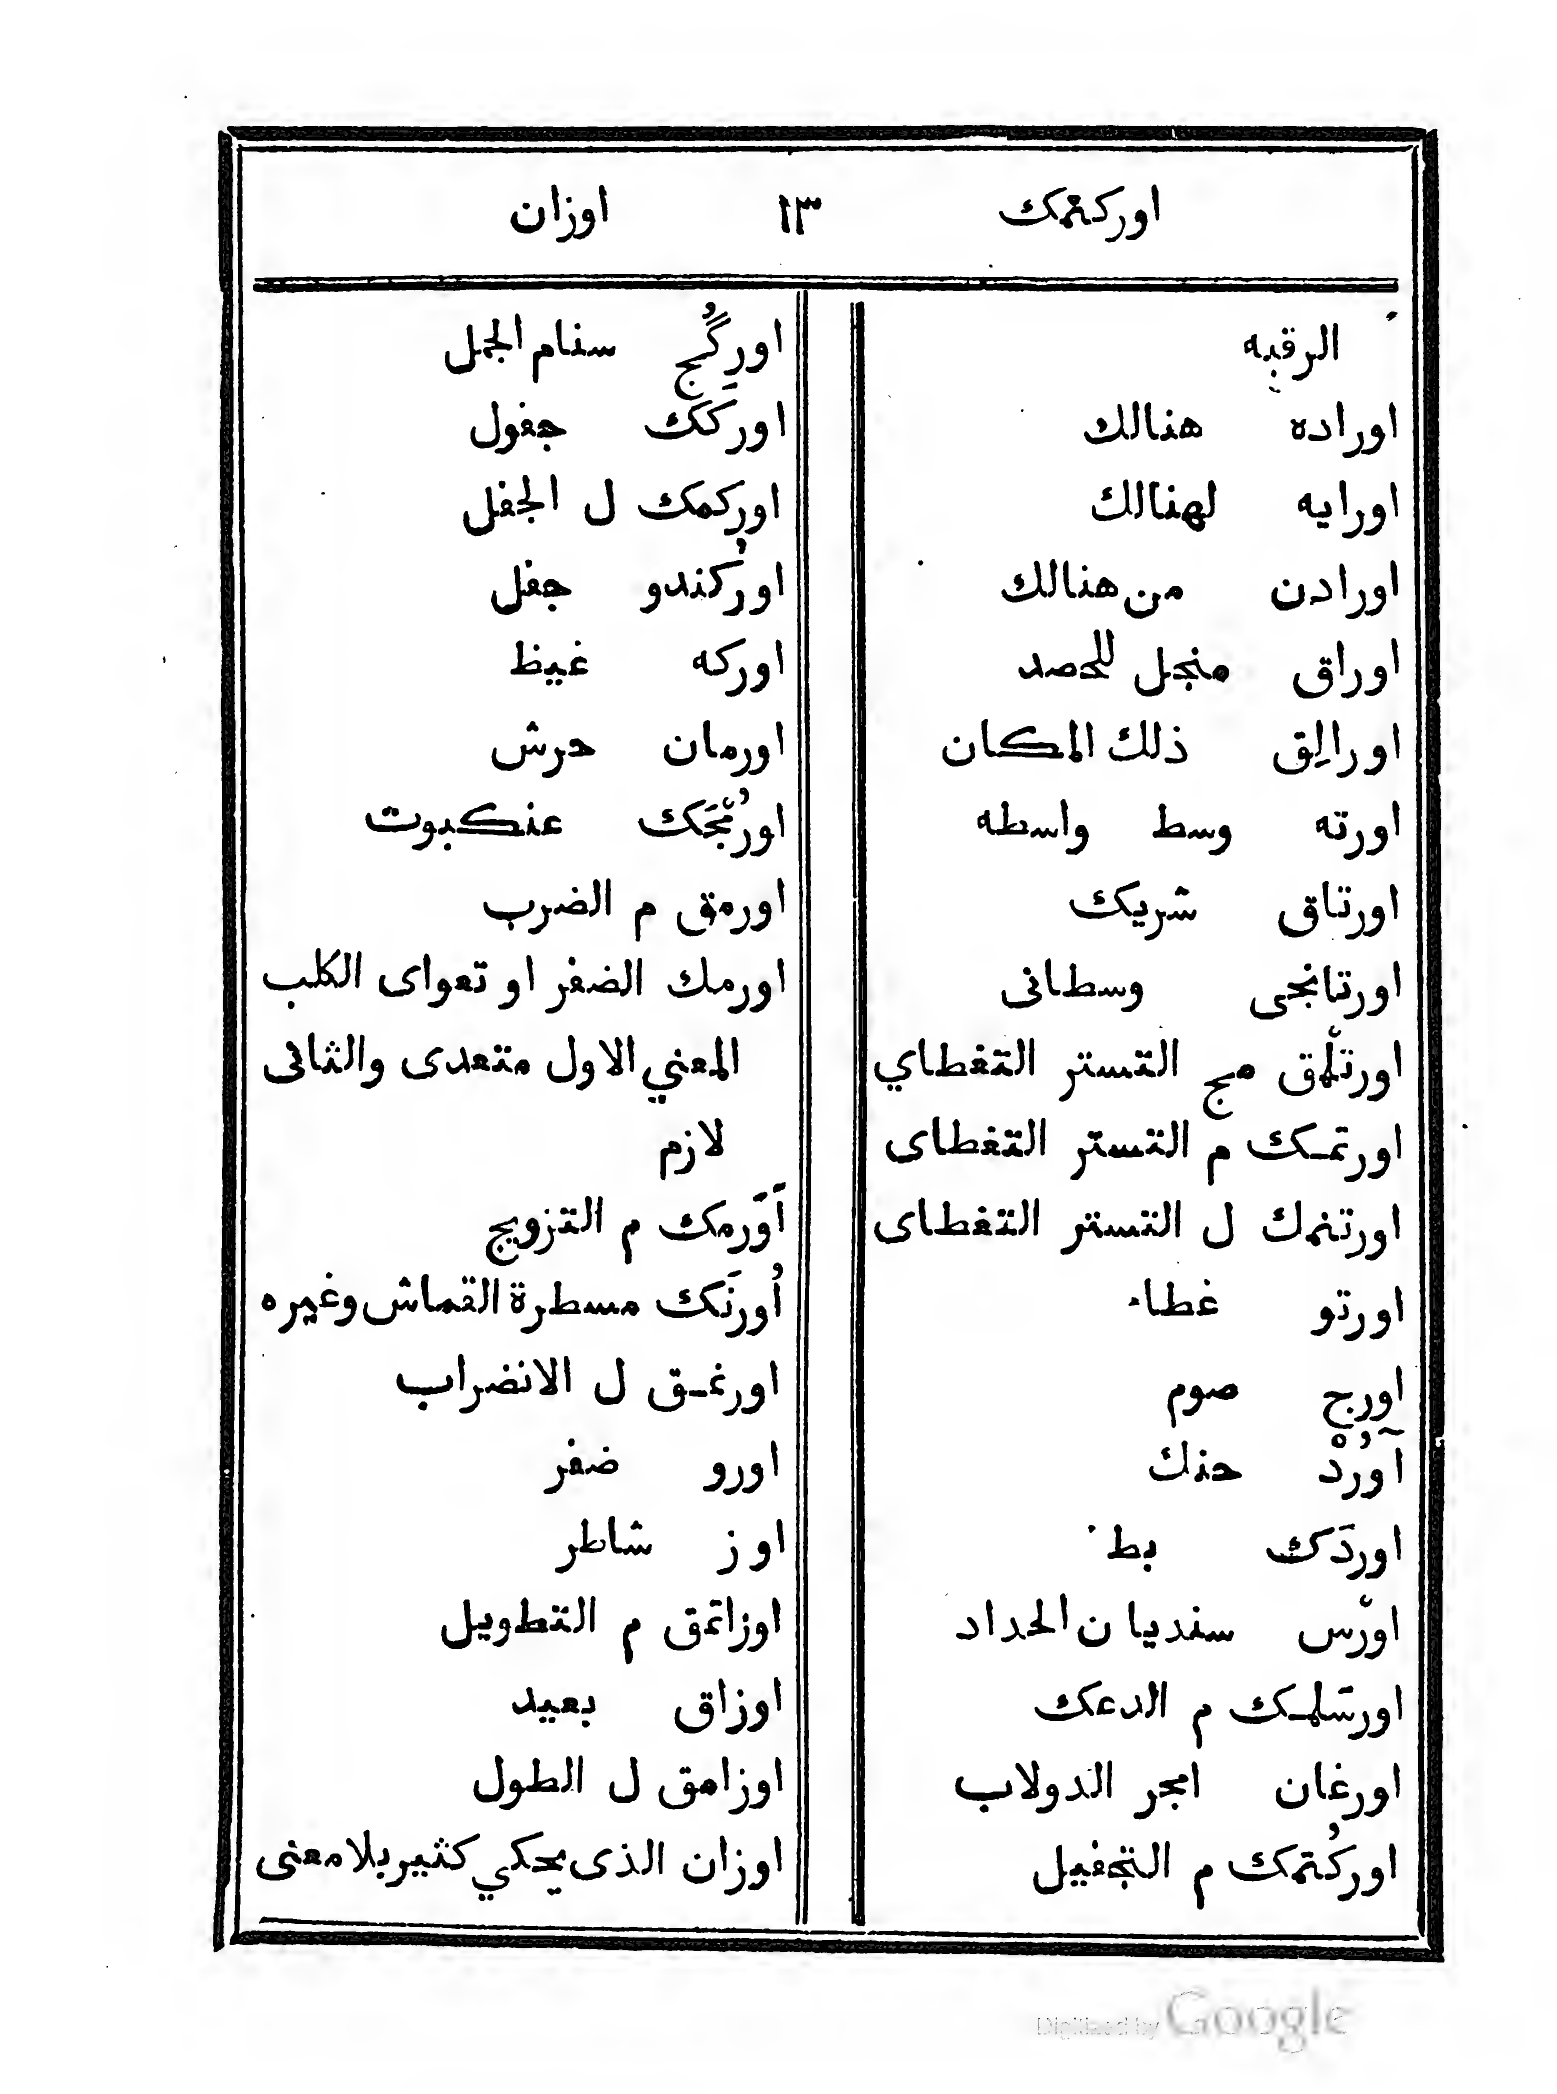 اوركتمك ١٣ اوزان
الرقبه
اوراده هنالك
اورايه لهنالك
اورادن من هنالك
اوراق منجل للحصد
اورالِق ذلك المكان
اورته وسط واسطه
اورتاق شريك
اورتانجى وسطانى
اورتلمق مج التستر التغطاي
اورتمك م التستر التغطاى
اورتنمك ل التستر التغطاى
اورتو غطاء
اورج صوم
آوُردْ حنك
اوردَك بط
اورس سنديان الحداد
اورسَلمك م الدعك
اورغان امجر الدولاب
اوركُتمك م التجفيل
اورِكُج سنام الجمل
اوركَك جفول
اوركمك ل الجفل
اورُكندو جفل
اوركه غيظ
اورمان حرش
اورُمجَك عنكبوت
اورمق م الضرب
اورمك الضفر او تعواى الكلب
المعني الاول متعدى والثانى
لازم
اَوَرمك م التزويج
اُورنَك مسطرة القماش وغيره
اورغق ل الانضراب
اورو ضفر
اوز شاطر
اوزاتمق م التطويل
اوزاق بعيد
اوزامق ل الطول
اوزان الذى يحكي كثير بلا معنى
Digitized by Google